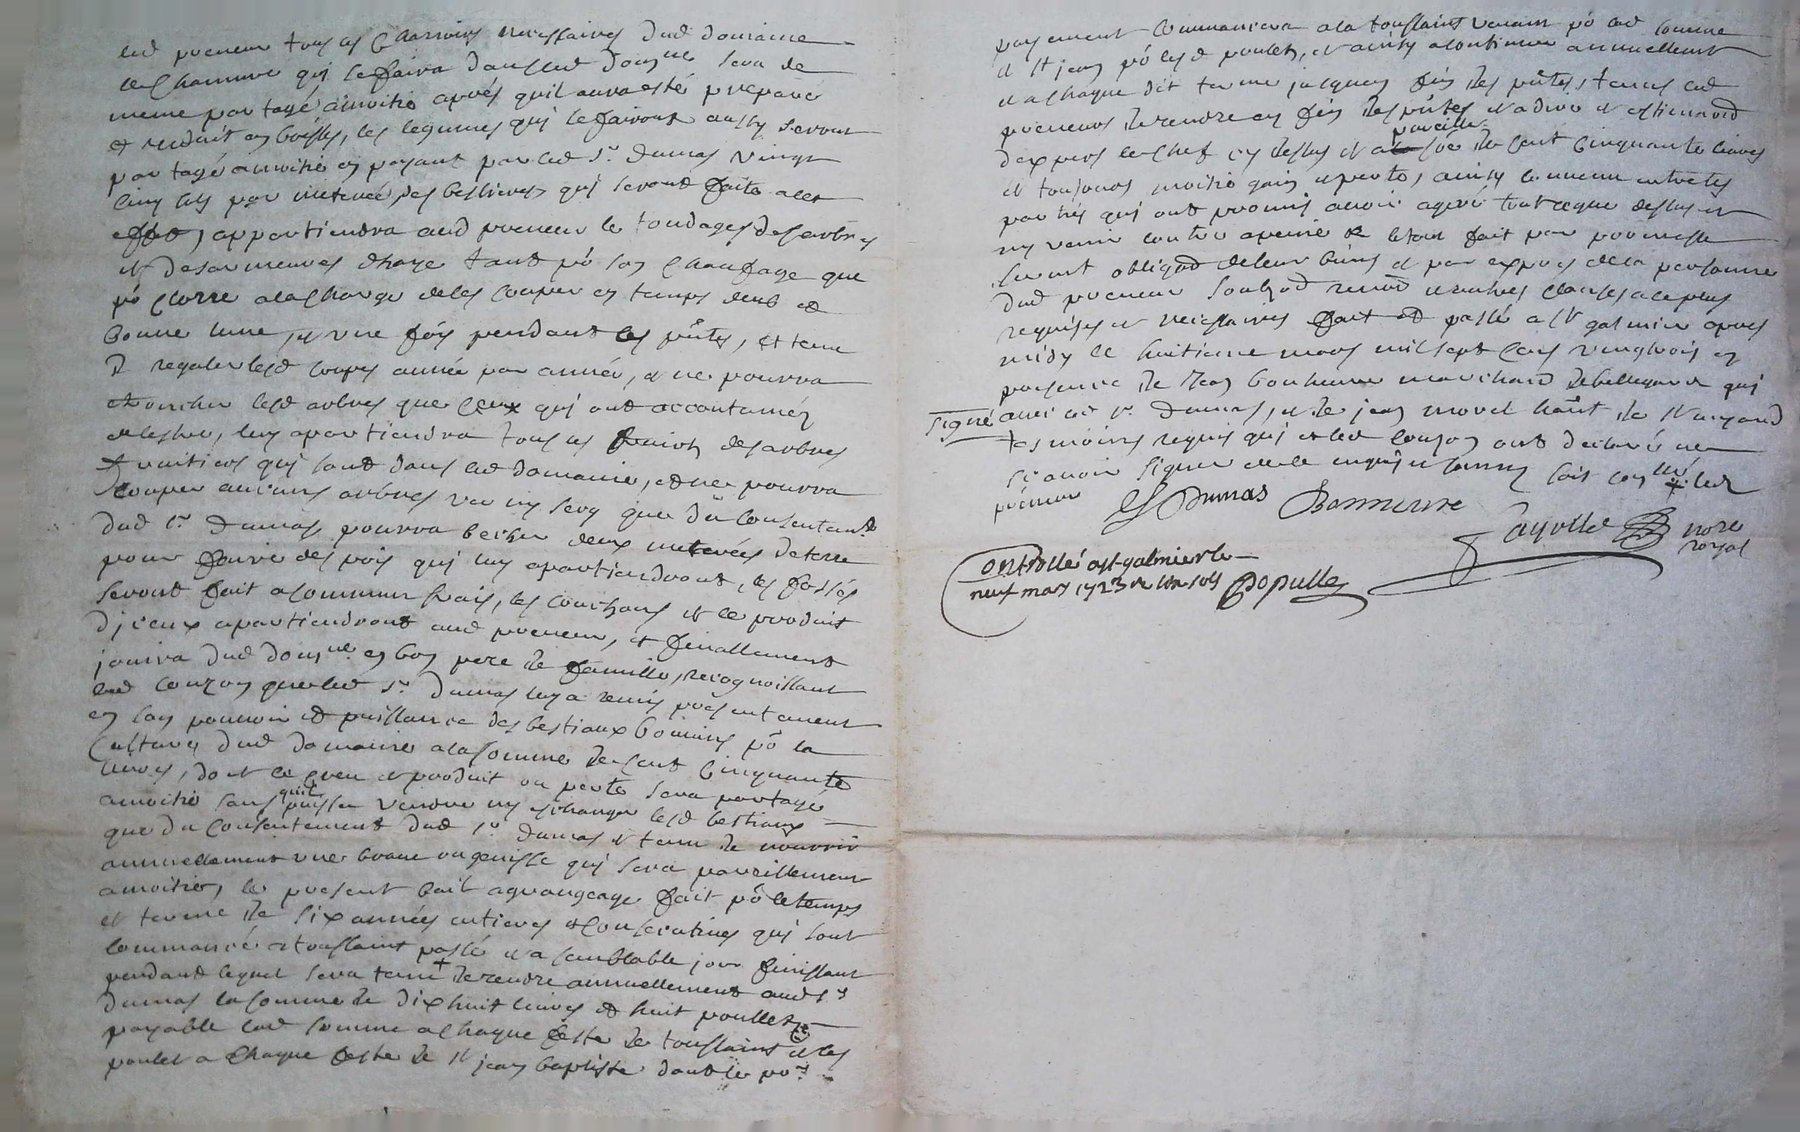 led preneur tous les charrois necessaires dud domaine
le chanvre qui se faira dans led domne sera de
meme partagé amoitié aprés quil aura esté preparé
et reduit en
partagé amoitié en payant par led sr. Dumas vingt
cinq sols par meterée, des qui seront faite a cet
effet, appartiendra aud preneur le tondages des arbres
et haye tant po son chaufage que
po clorre a la charge de les couper en temps deub et
bonne lune, et une fois pendant les pntes, et tenu
regaler lesd coupes année par année, et ne pourra
lesd arbres que ceux qui ont accoutumés
de lestre, luy apartiendra tous les fruicts des arbres
fruitiers qui sont dans led domaine, et ne pourra
couper aucuns arbres ver ny secq que du consentemt
dud sr. Dumas, pourra becher deux meterées de terre
pour faire des pois qui luy apartiendront, les fossés
seront fait a commun frais, les et le produit
diceux apartiendront aud preneur, et finallement
jouira dud domne en bon pere de famille, recognoissant
led couzon que led sr. Dumas luy a remis presentement
en son pouvoir et puissance des bestiaux bovins po la
culture dud domaine a la somme de cent cinquante
livres, dont le creu et produit ou perte sera partagé
amoitié sans quil puisse vendre ny eschanger lesd bestiaux
que du consentement dud sr. Dumas et tenu de nourrir
annuellement une ou genisse qui sera pareillement
amoitié, le present bail a grangeage fait po le temps
et terme de six années entieres et consecutives qui sont
commancé a toussaint passé et a semblable jour finissant
pendant lequel sera tenu de rendre annuellement aud sr
Dumas la somme de dix huit livres et huit poullets
payable lad somme a chaque feste de toussaint et les
poulet a chaque feste de st jean baptiste dont le pr.
payement commancera a la toussaint venant po lad somme
et st jean po lesd poulets, et ainsy a continuer annuellement
et a chaque dit terme jusques fin des pntes, tenus led
preneur de rendre en fin des pntes et a dire et estimaon
dexpers le chef cy dessus et a pareille de cent cinquante livres
et toujours moitié gain et perte, ainsy convenu entre les
parties qui ont promis avoir agreé tout ce que dessus et
ny venir contre a peine & le tout fait par promesse
serment obligaon de leur biens et par expres de la personne
dud preneur renon et autres clauses a ce plus
requises et necessaires fait et passé a st galmier apres
midy le huitieme mars mil sept cens vingtrois en
presence de Jean bonheure marchand de bellegarde qui
signé avec led sr. Dumas, et de jean morel hant de st
tesmoins requis qui et led couzon ont declaré ne
scavoir signer de ce enquis et sommés soit con led
preneur
Dumas Bonnierre
Fayolle nore
royal
Controllé a st galmier le
neuf mars 1723 sols Populle